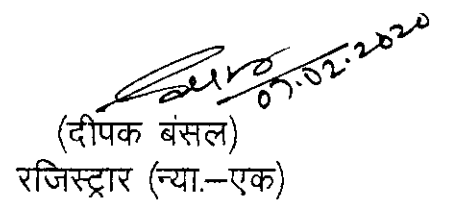 07.02.2020
(दीपक बंसल)
रजिस्ट्रार (न्या.–एक)